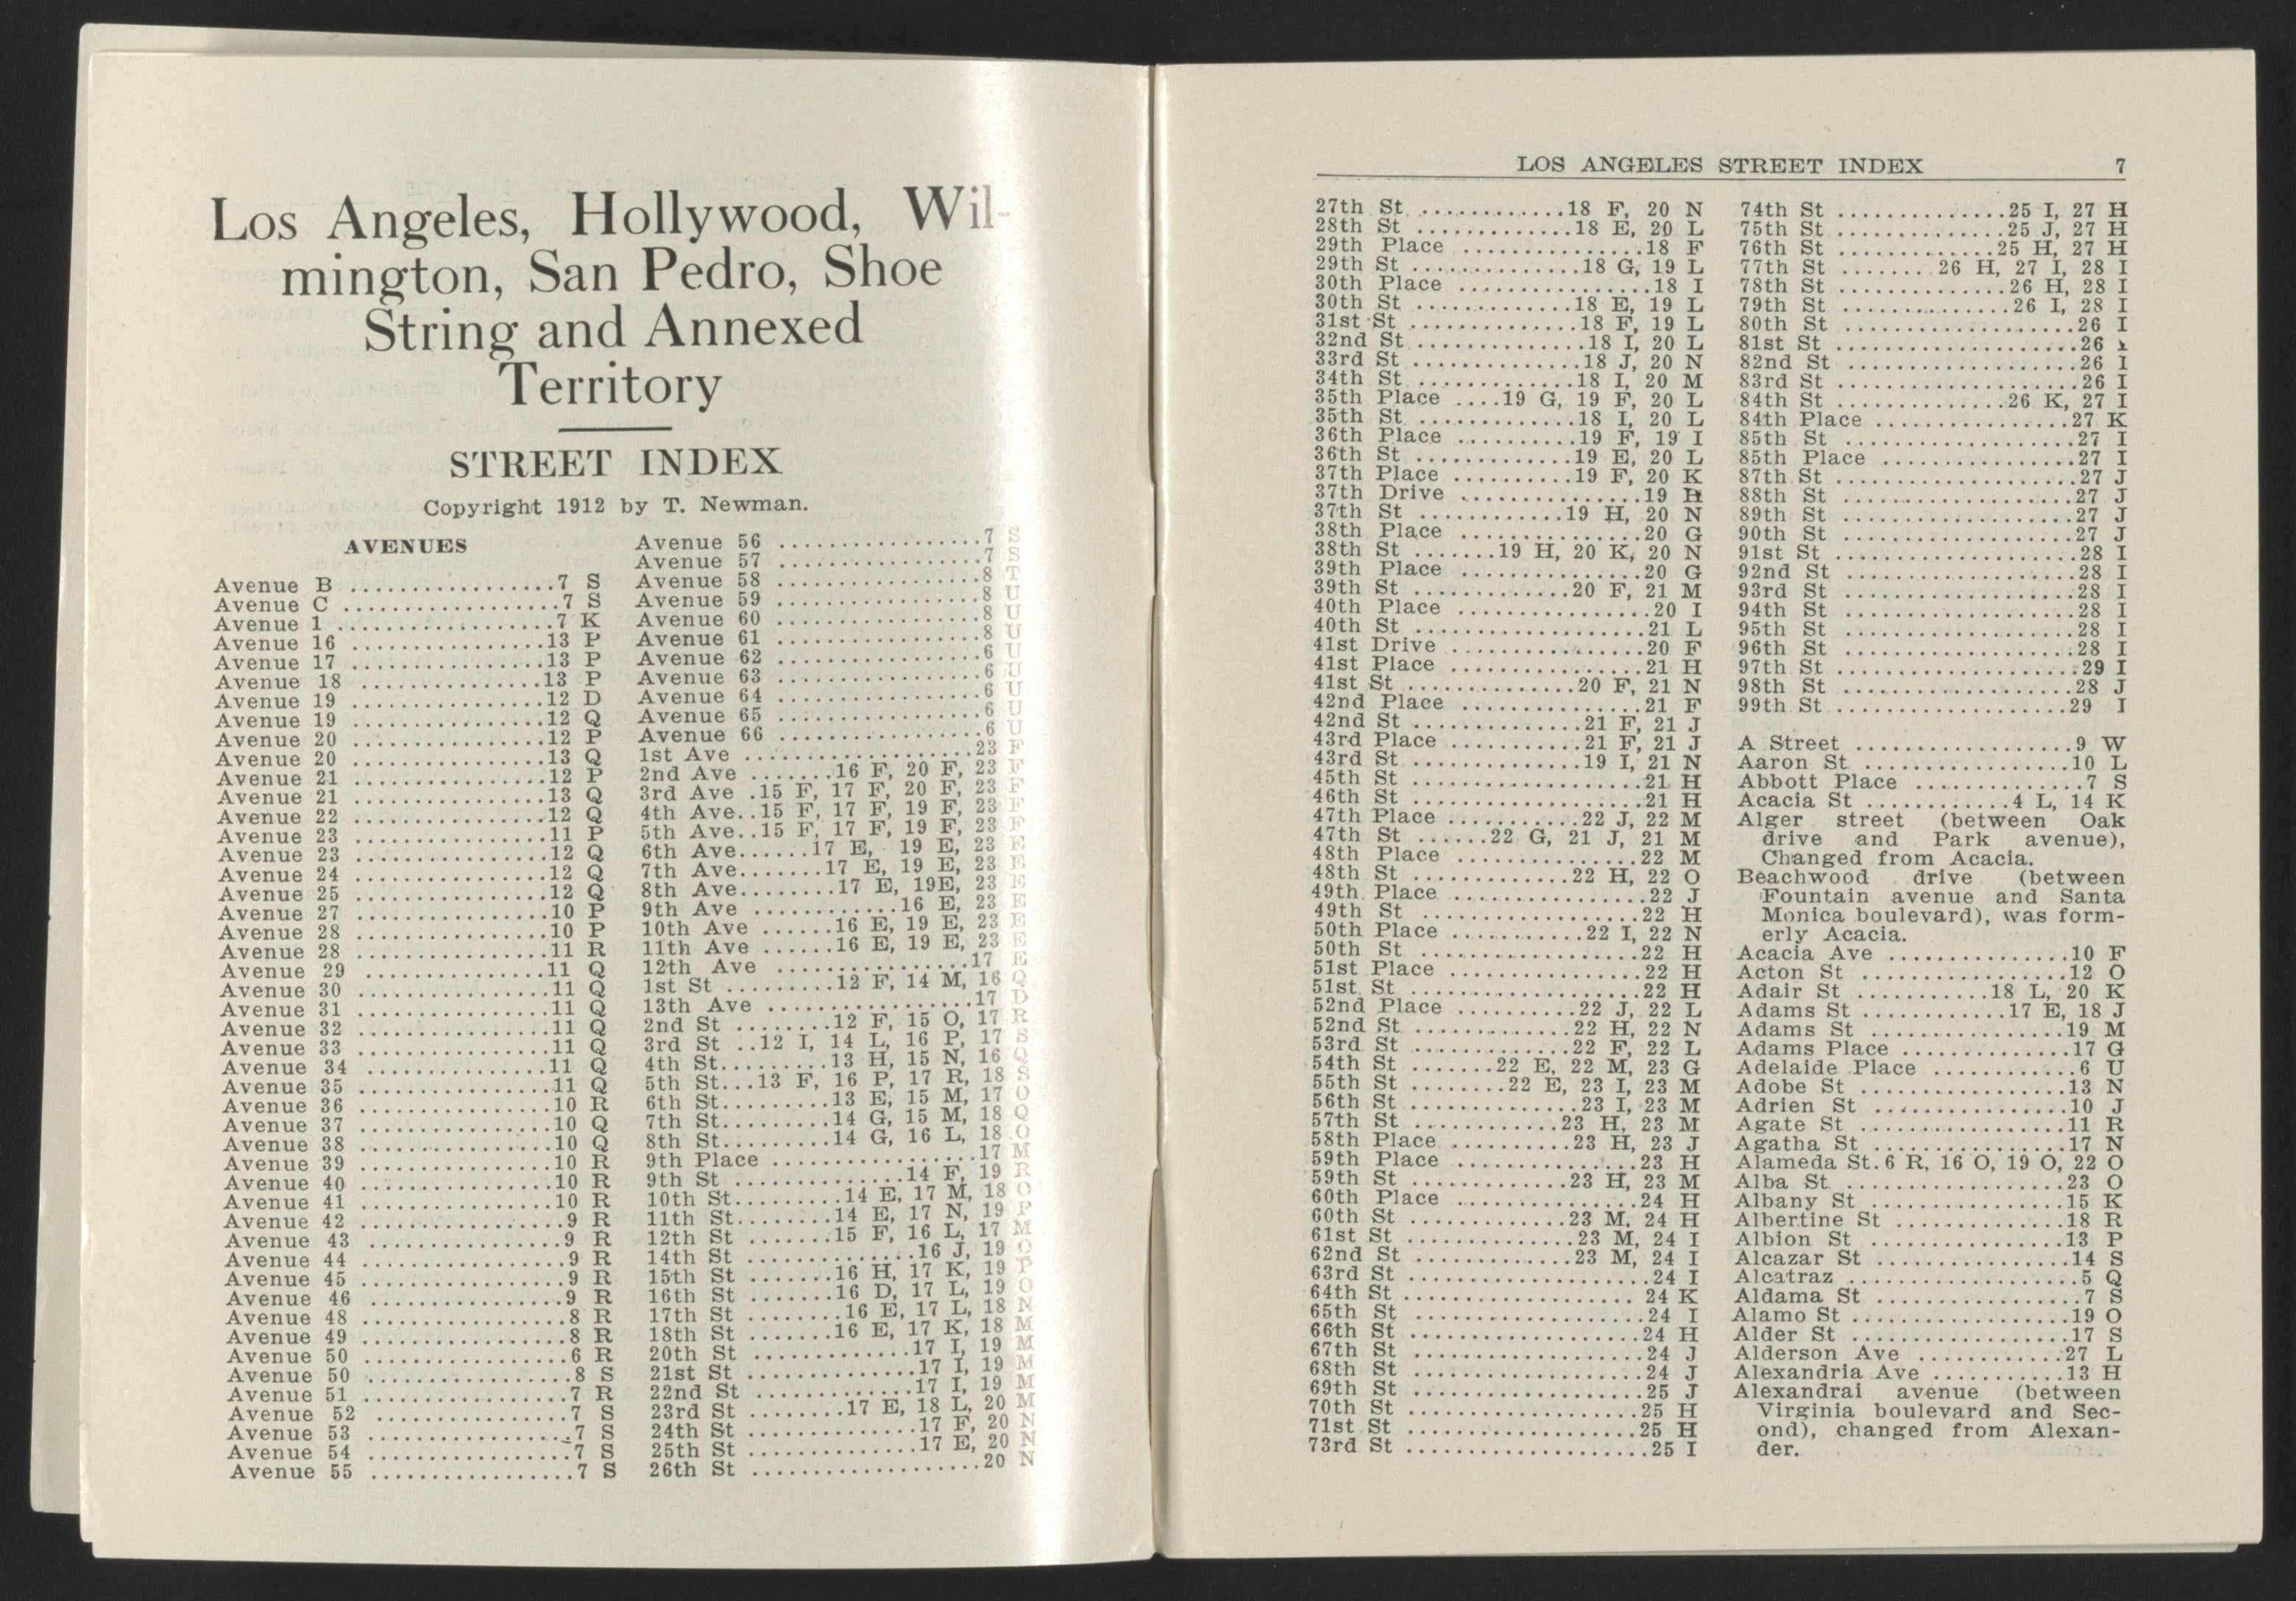 Los Angeles, Hollywood, Wil-
mington, San Pedro, Shoe
String and Annexed
Territory
STREET INDEX
Copyright 1912 by T. Newman.
AVENUES
Avenue B .................7 S
Avenue C ..................7 S
Avenue 1 ..................7 K
Avenue 16 ................13 P
Avenue 17 ................13 P
Avenue 18 ...............13 P
Avenue 19 ................12 D
Avenue 19 ................12 Q
Avenue 20 ................12 P
Avenue 20 ................13 Q
Avenue 21 ................12 P
Avenue 21 ................13 Q
Avenue 22 ................12 Q
Avenue 23 ................11 P
Avenue 23 ................12 Q
Avenue 24 ................12 Q
Avenue 25 ................12 Q
Avenue 27 ................10 P
Avenue 28 ................10 P
Avenue 28 ................11 R
Avenue 29 ...............11 Q
Avenue 30 ................11 Q
Avenue 31 ................11 Q
Avenue 32 ................11 Q
Avenue 33 ................11 Q
Avenue 34 ...............11 Q
Avenue 35 ................11 Q
Avenue 36 ................10 R
Avenue 37 ................10 Q
Avenue 38 ................10 Q
Avenue 39 ................10 R
Avenue 40 ................10 R
Avenue 41 ................10 R
Avenue 42 .................9 R
Avenue 43 ................9 R
Avenue 44 .................9 R
Avenue 45 .................9 R
Avenue 46 ................9 R
Avenue 48 .................8 R
Avenue 49 .................8 R
Avenue 50 .................6 R
Avenue 50 ..................8 S
Avenue 51 .................7 R
Avenue 52 ................7 S
Avenue 53 .................7 S
Avenue 54 .................7 S
Avenue 55 .................7 S
Avenue 56 .................7 S
Avenue 57 .................7 S
Avenue 58 .................8 T
Avenue 59 .................8 U
Avenue 60 .................8 U
Avenue 61 .................8 U
Avenue 62 .................6 U
Avenue 63 .................6 U
Avenue 64 .................6 U
Avenue 65 .................6 U
Avenue 66 .................6 U
1st Ave ...................23 F
2nd Ave .......16 F, 20 F, 23 F
3rd Ave .15 F, 17 F, 20 F, 23 F
4th Ave..15 F, 17 F, 19 F, 23 F
5th Ave..15 F, 17 F, 19 F, 23 F
6th Ave......17 E, 19 E, 23 E
7th Ave.......17 E, 19 E, 23 E
8th Ave........17 E, 19E, 23 E
9th Ave ............16 E, 23 E
10th Ave ......16 E, 19 E, 23 E
11th Ave ......16 E, 19 E, 23 E
12th Ave ................17 E
1st St .........12 F, 14 M, 16 Q
13th Ave ..................17 D
2nd St ........12 F, 15 O, 17 R
3rd St ..12 I, 14 L, 16 P, 17 S
4th St.........13 H, 15 N, 16 Q
5th St...13 F, 16 P, 17 R, 18 S
6th St.........13 E, 15 M, 17 O
7th St.........14 G, 15 M, 18 Q
8th St.........14 G, 16 L, 18 O
9th Place ..................17 M
9th St ...............14 F, 19 R
10th St.........14 E, 17 M, 18 O
11th St.........14 E, 17 N, 19 P
12th St .......15 F, 16 L, 17 M
14th St ..............16 J, 19 O
15th St .......16 H, 17 K, 19 P
16th St .......16 D, 17 L, 19 O
17th St ........16 E, 17 L, 18 N
18th St .......16 E, 17 K, 18 M
20th St .............17 I, 19 M
21st St ..............17 I, 19 M
22nd St .............17 I, 19 M
23rd St ........17 E, 18 L, 20 M
24th St ..............17 F, 20 N
25th St ..............17 E, 20 N
26th St ....................20 N
LOS ANGELES STREET INDEX 7
27th St .............18 F, 20 N
28th St .............18 E, 20 L
29th Place ...............18 F
29th St ...............18 G, 19 L
30th Place .................18 I
30th St ..............18 E, 19 L
31st St ...............18 F, 19 L
32nd St ...............18 I, 20 L
33rd St ...............18 J, 20 N
34th St ..............18 I, 20 M
35th Place ....19 G, 19 F, 20 L
35th St ..............18 I, 20 L
36th Place ..........19 F, 19 I
36th St ..............19 E, 20 L
37th Place ..........19 F, 20 K
37th Drive ...............19 H
37th St .............19 H, 20 N
38th Place ...............20 G
38th St .......19 H, 20 K, 20 N
39th Place ...............20 G
39th St .............20 F, 21 M
40th Place ................20 I
40th St ....................21 L
41st Drive ................20 F
41st Place ................21 H
41st St ..............20 F, 21 N
42nd Place ................21 F
42nd St ..............21 F, 21 J
43rd Place ...........21 F, 21 J
43rd St ..............19 I, 21 N
45th St ....................21 H
46th St ....................21 H
47th Place ...........22 J, 22 M
47th St ......22 G, 21 J, 21 M
48th Place ...............22 M
48th St .............22 H, 22 O
49th Place ................22 J
49th St ...................22 H
50th Place ...........22 I, 22 N
50th St ....................22 H
51st Place ................22 H
51st St ....................22 H
52nd Place ..........22 J, 22 L
52nd St .............22 H, 22 N
53rd St .............22 F, 22 L
54th St .......22 E, 22 M, 23 G
55th St ........22 E, 23 I, 23 M
56th St ..............23 I, 23 M
57th St ............23 H, 23 M
58th Place ..........23 H, 23 J
59th Place ...............23 H
59th St .............23 H, 23 M
60th Place ...............24 H
60th St .............23 M, 24 H
61st St ..............23 M, 24 I
62nd St .............23 M, 24 I
63rd St .....................24 I
64th St .................... 24 K
65th St ....................24 I
66th St ....................24 H
67th St ....................24 J
68th St ....................24 J
69th St ....................25 J
70th St ....................25 H
71st St .....................25 H
73rd St .....................25 I
74th St ...............25 I, 27 H
75th St ...............25 J, 27 H
76th St .............25 H, 27 H
77th St ....... 26 H, 27 I, 28 I
78th St ...............26 H, 28 I
79th St ...............26 I, 28 I
80th St .....................26 I
81st St ......................26
82nd St .....................26 I
83rd St ......................26 I
84th St ...............26 K, 27 I
84th Place .................27 K
85th St .....................27 I
85th Place .................27 I
87th St .....................27 J
88th St .....................27 J
89th St .....................27 J
90th St .....................27 J
91st St ......................28 I
92nd St .....................28 I
93rd St .....................28 I
94th St .....................28 I
95th St .....................28 I
96th St .....................28 I
97th St .....................29 I
98th St .....................28 J
99th St .....................29 I
A Street ....................9 W
Aaron St ...................10 L
Abbott Place ...............7 S
Acacia St .............4 L, 14 K
Alger street (between Oak
drive and Park avenue),
Changed from Acacia.
Beachwood drive (between
Fountain avenue and Santa
Monica boulevard), was form-
erly Acacia.
Acacia Ave ..................10 F
Acton St ...................12 O
Adair St ............18 L, 20 K
Adams St .............17 E, 18 J
Adams St ..................19 M
Adams Place ...............17 G
Adelaide Place .............6 U
Adobe St ....................13 N
Adrien St ..................10 J
Agate St ....................11 R
Agatha St ..................17 N
Alameda St. 6 R, 16 O, 19 O, 22 O
Alba St ....................23 O
Albany St ...................15 K
Albertine St ...............18 R
Albion St ..................13 P
Alcazar St .................14 S
Alcatraz .....................5 Q
Aldama St ...................7 S
Alamo St ....................19 O
Alder St ....................17 S
Alderson Ave .............27 L
Alexandria Ave ............13 H
Alexandrai avenue (between
Virginia boulevard and Sec-
ond), changed from Alexan-
der.